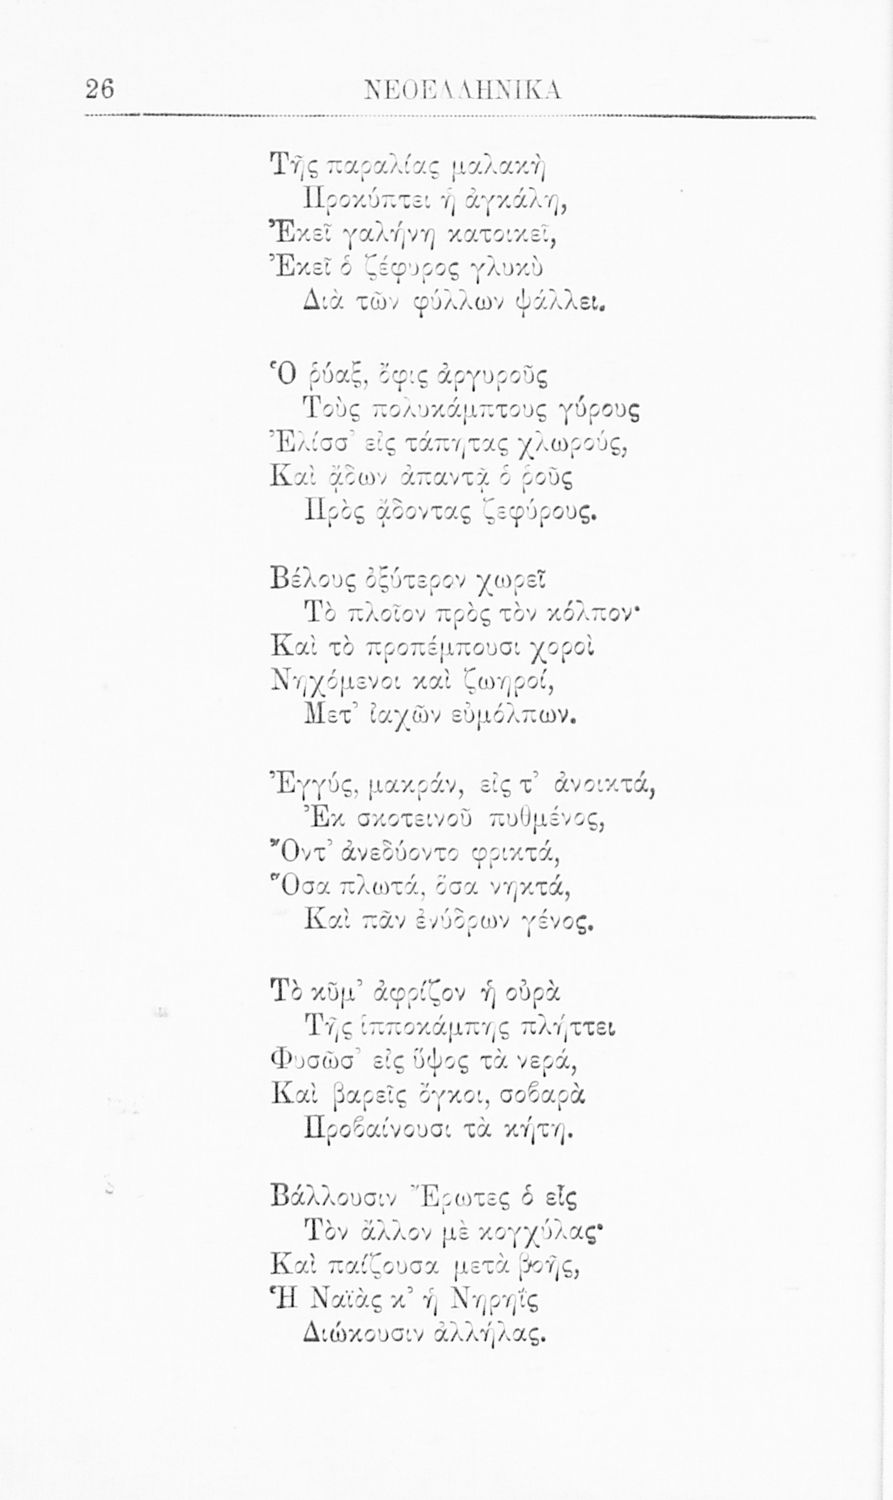 26 ΝΕΟΕΛΛΗΝΙΚΑ
Τῆς παραλίας μαλακὴ
Προκύπτει ἡ ἀγκάλη,
Ἐκεῖ γαλήνη κατοικεῖ,
Ἐκεῖ ὁ ζέφυρος γλυκὺ
Διὰ τῶν φύλλων ψάλλει.
Ὁ ῥύαξ, ὄφις ἀργυροῦς
Τοὺς πολυκάμπτους γύρους
Ἑλίσσ᾽ εἰς τάπητας χλωρούς,
Καὶ ᾄδων ἀπαντᾷ ὁ ῥοῦς
Πρὸς ᾄδοντας ζεφύρους.
Βέλους ὀξύτερον χωρεῖ
Τὸ πλοῖον πρὸς τὸν κόλπον·
Καὶ τὸ προπέμπουσι χοροὶ
Νηχόμενοι καὶ ζωηροί,
Μετ᾽ ἰαχῶν εὐμόλπων.
Ἐγγύς, μακράν, εἰς τ᾽ ἀνοικτά,
Ἐκ σκοτεινοῦ πυθμένος,
Ὄντ᾽ ἀνεδύοντο φρικτά,
Ὅσα πλωτά, ὅσα νηκτά,
Καὶ πᾶν ἐνύδρων γένος.
Τὸ κῦμ᾽ ἀφρίζον ἡ οὐρὰ
Τῆς ἱπποκάμπης πλήττει
Φυσῶσ᾽ εἰς ὕψος τὰ νερά,
Καὶ βαρεῖς ὄγκοι, σοβαρὰ
Προβαίνουσι τὰ κήτη.
Βάλλουσιν Ἔρωτες ὁ εἷς
Τὸν ἄλλον μὲ κογχύλας·
Καὶ παίζουσα μετὰ βοῆς,
Ἡ Ναϊὰς κ᾽ ἡ Νηρηῒς
Διώκουσιν ἀλλήλας.